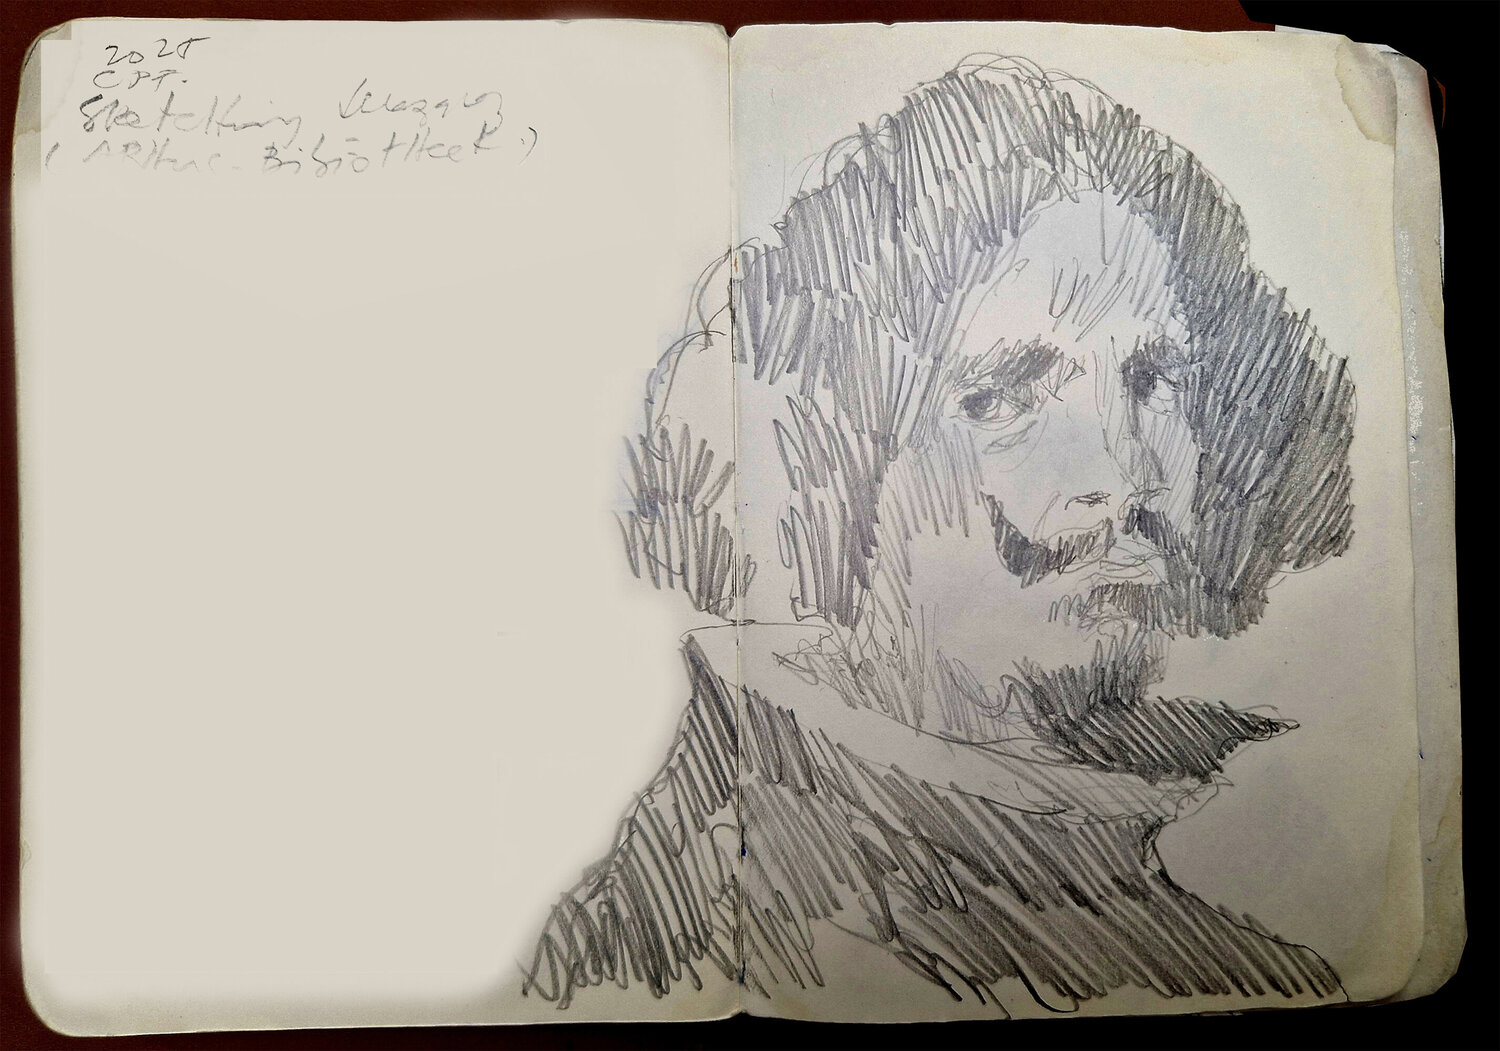 2025
CPT.
SketcHing Velazquez
( Bibliotheek.)